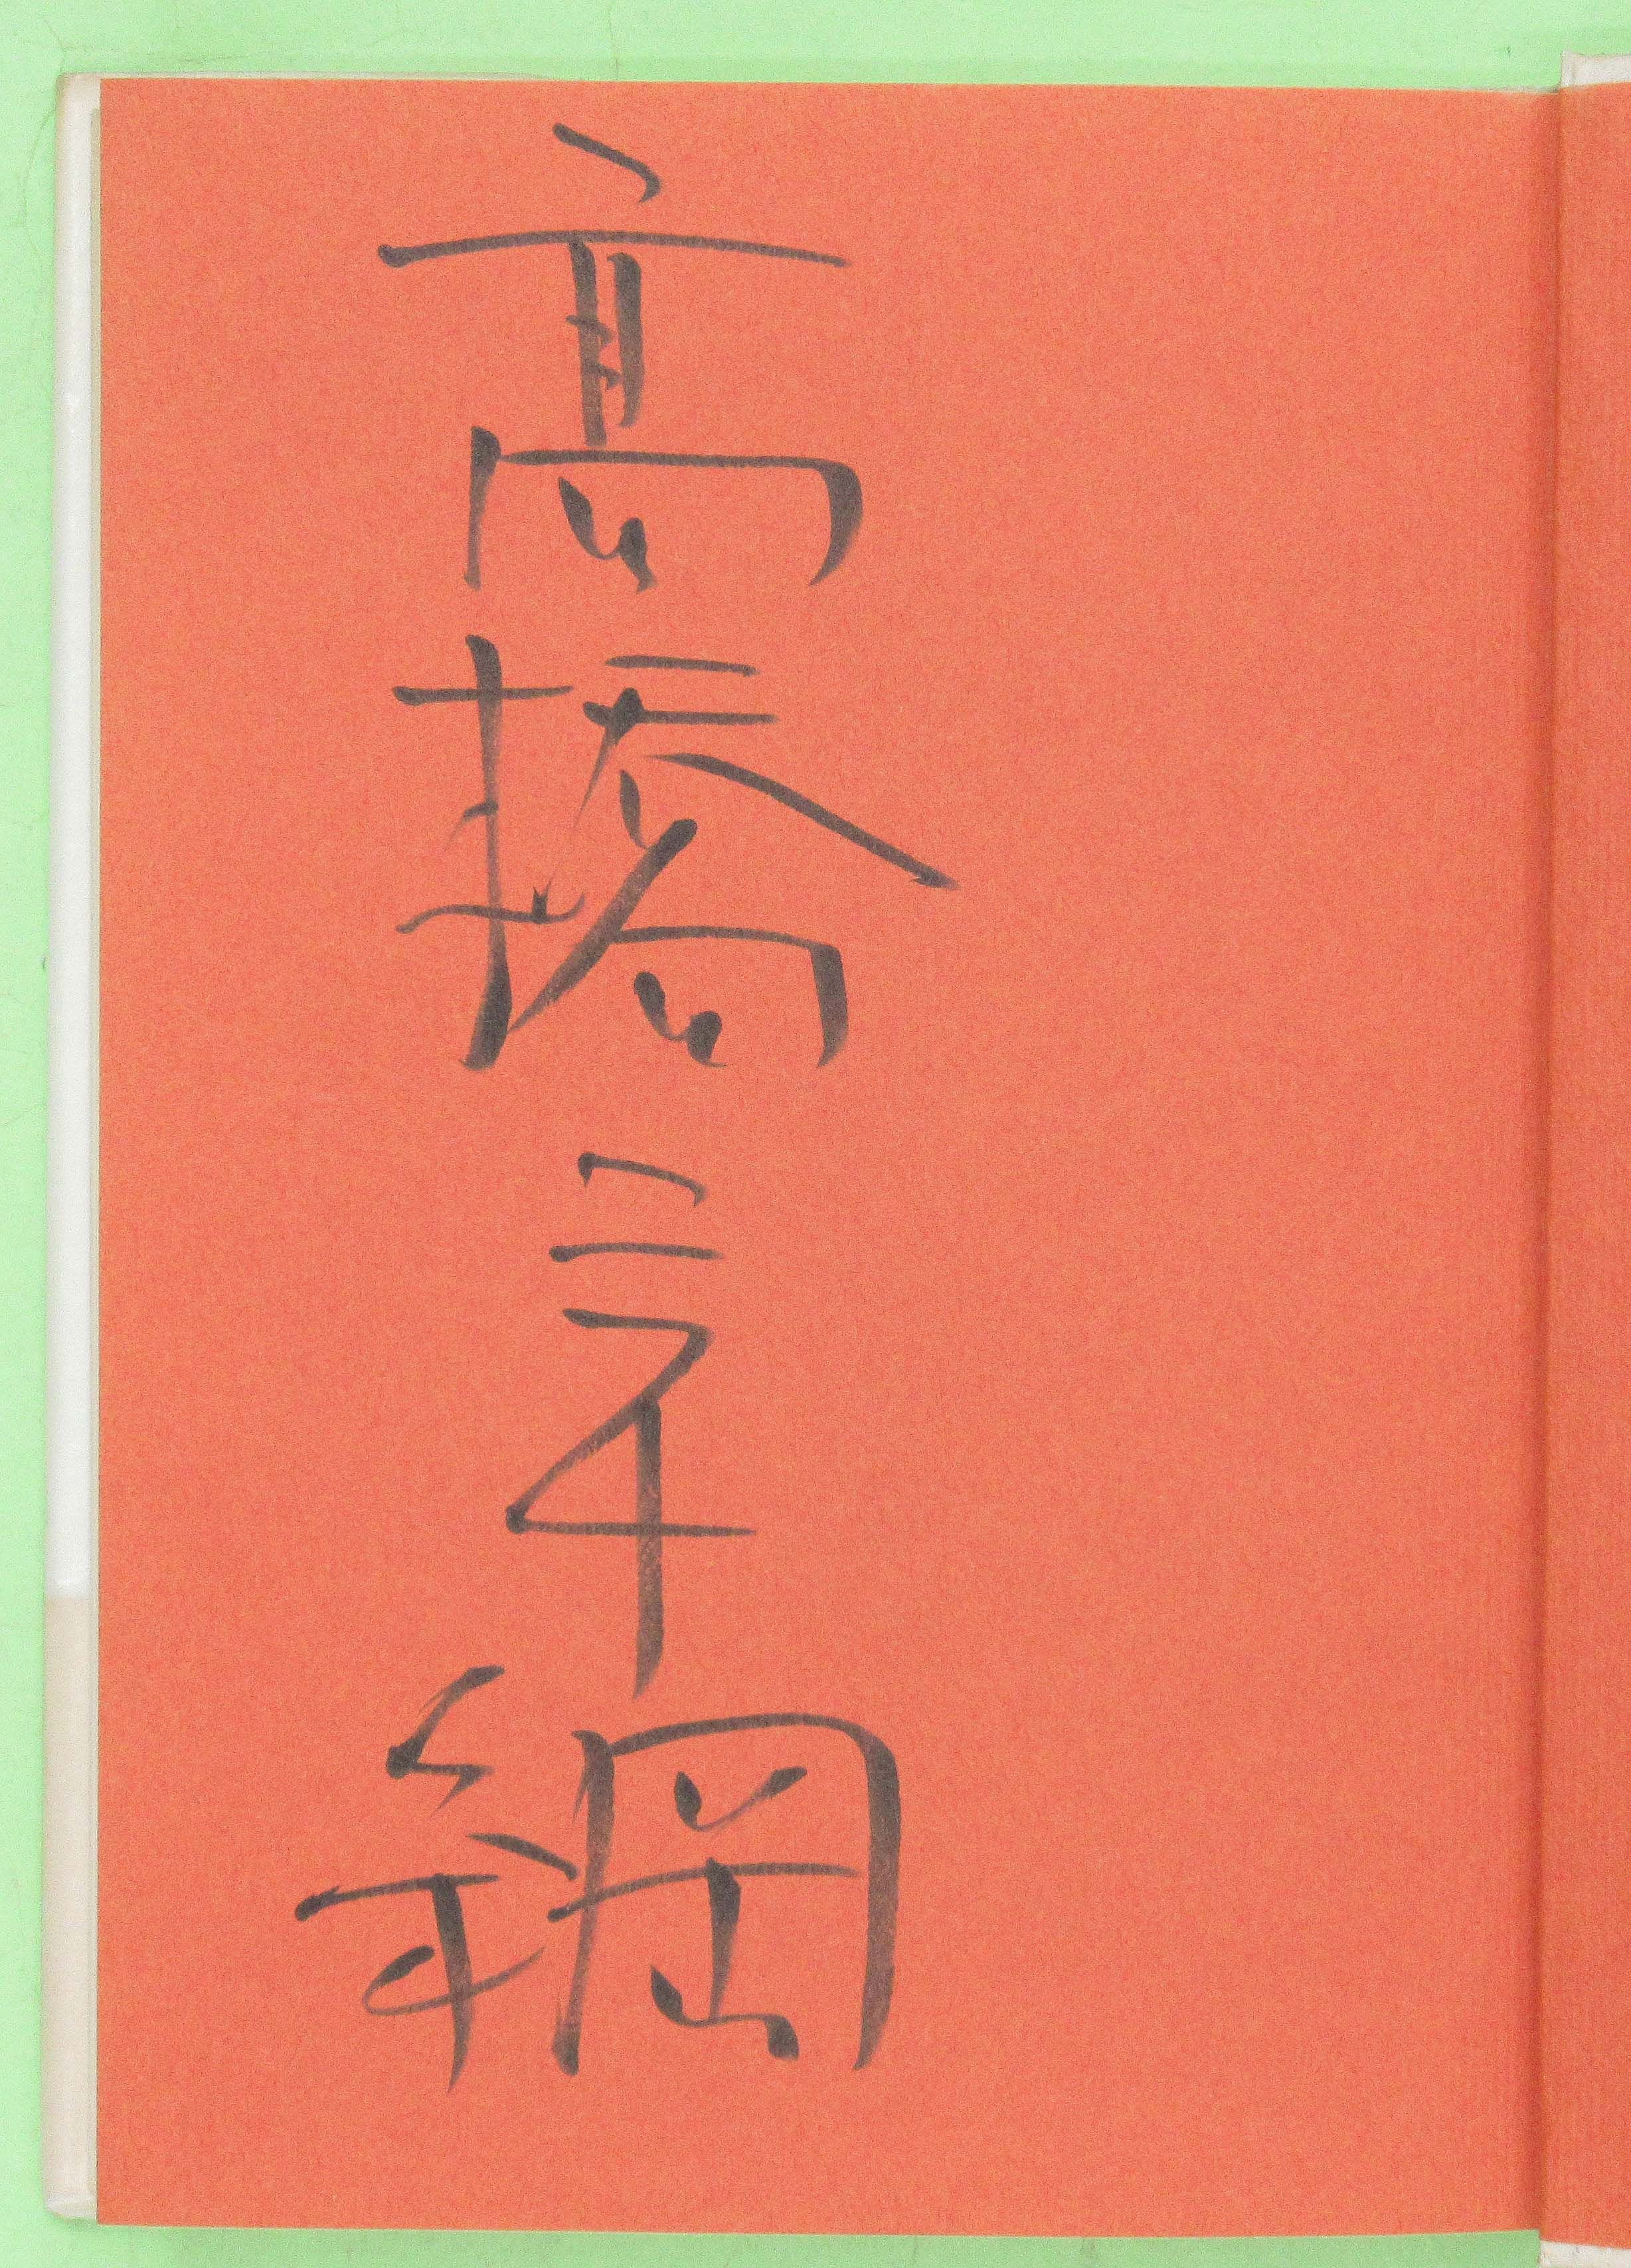 髙橋三千綱